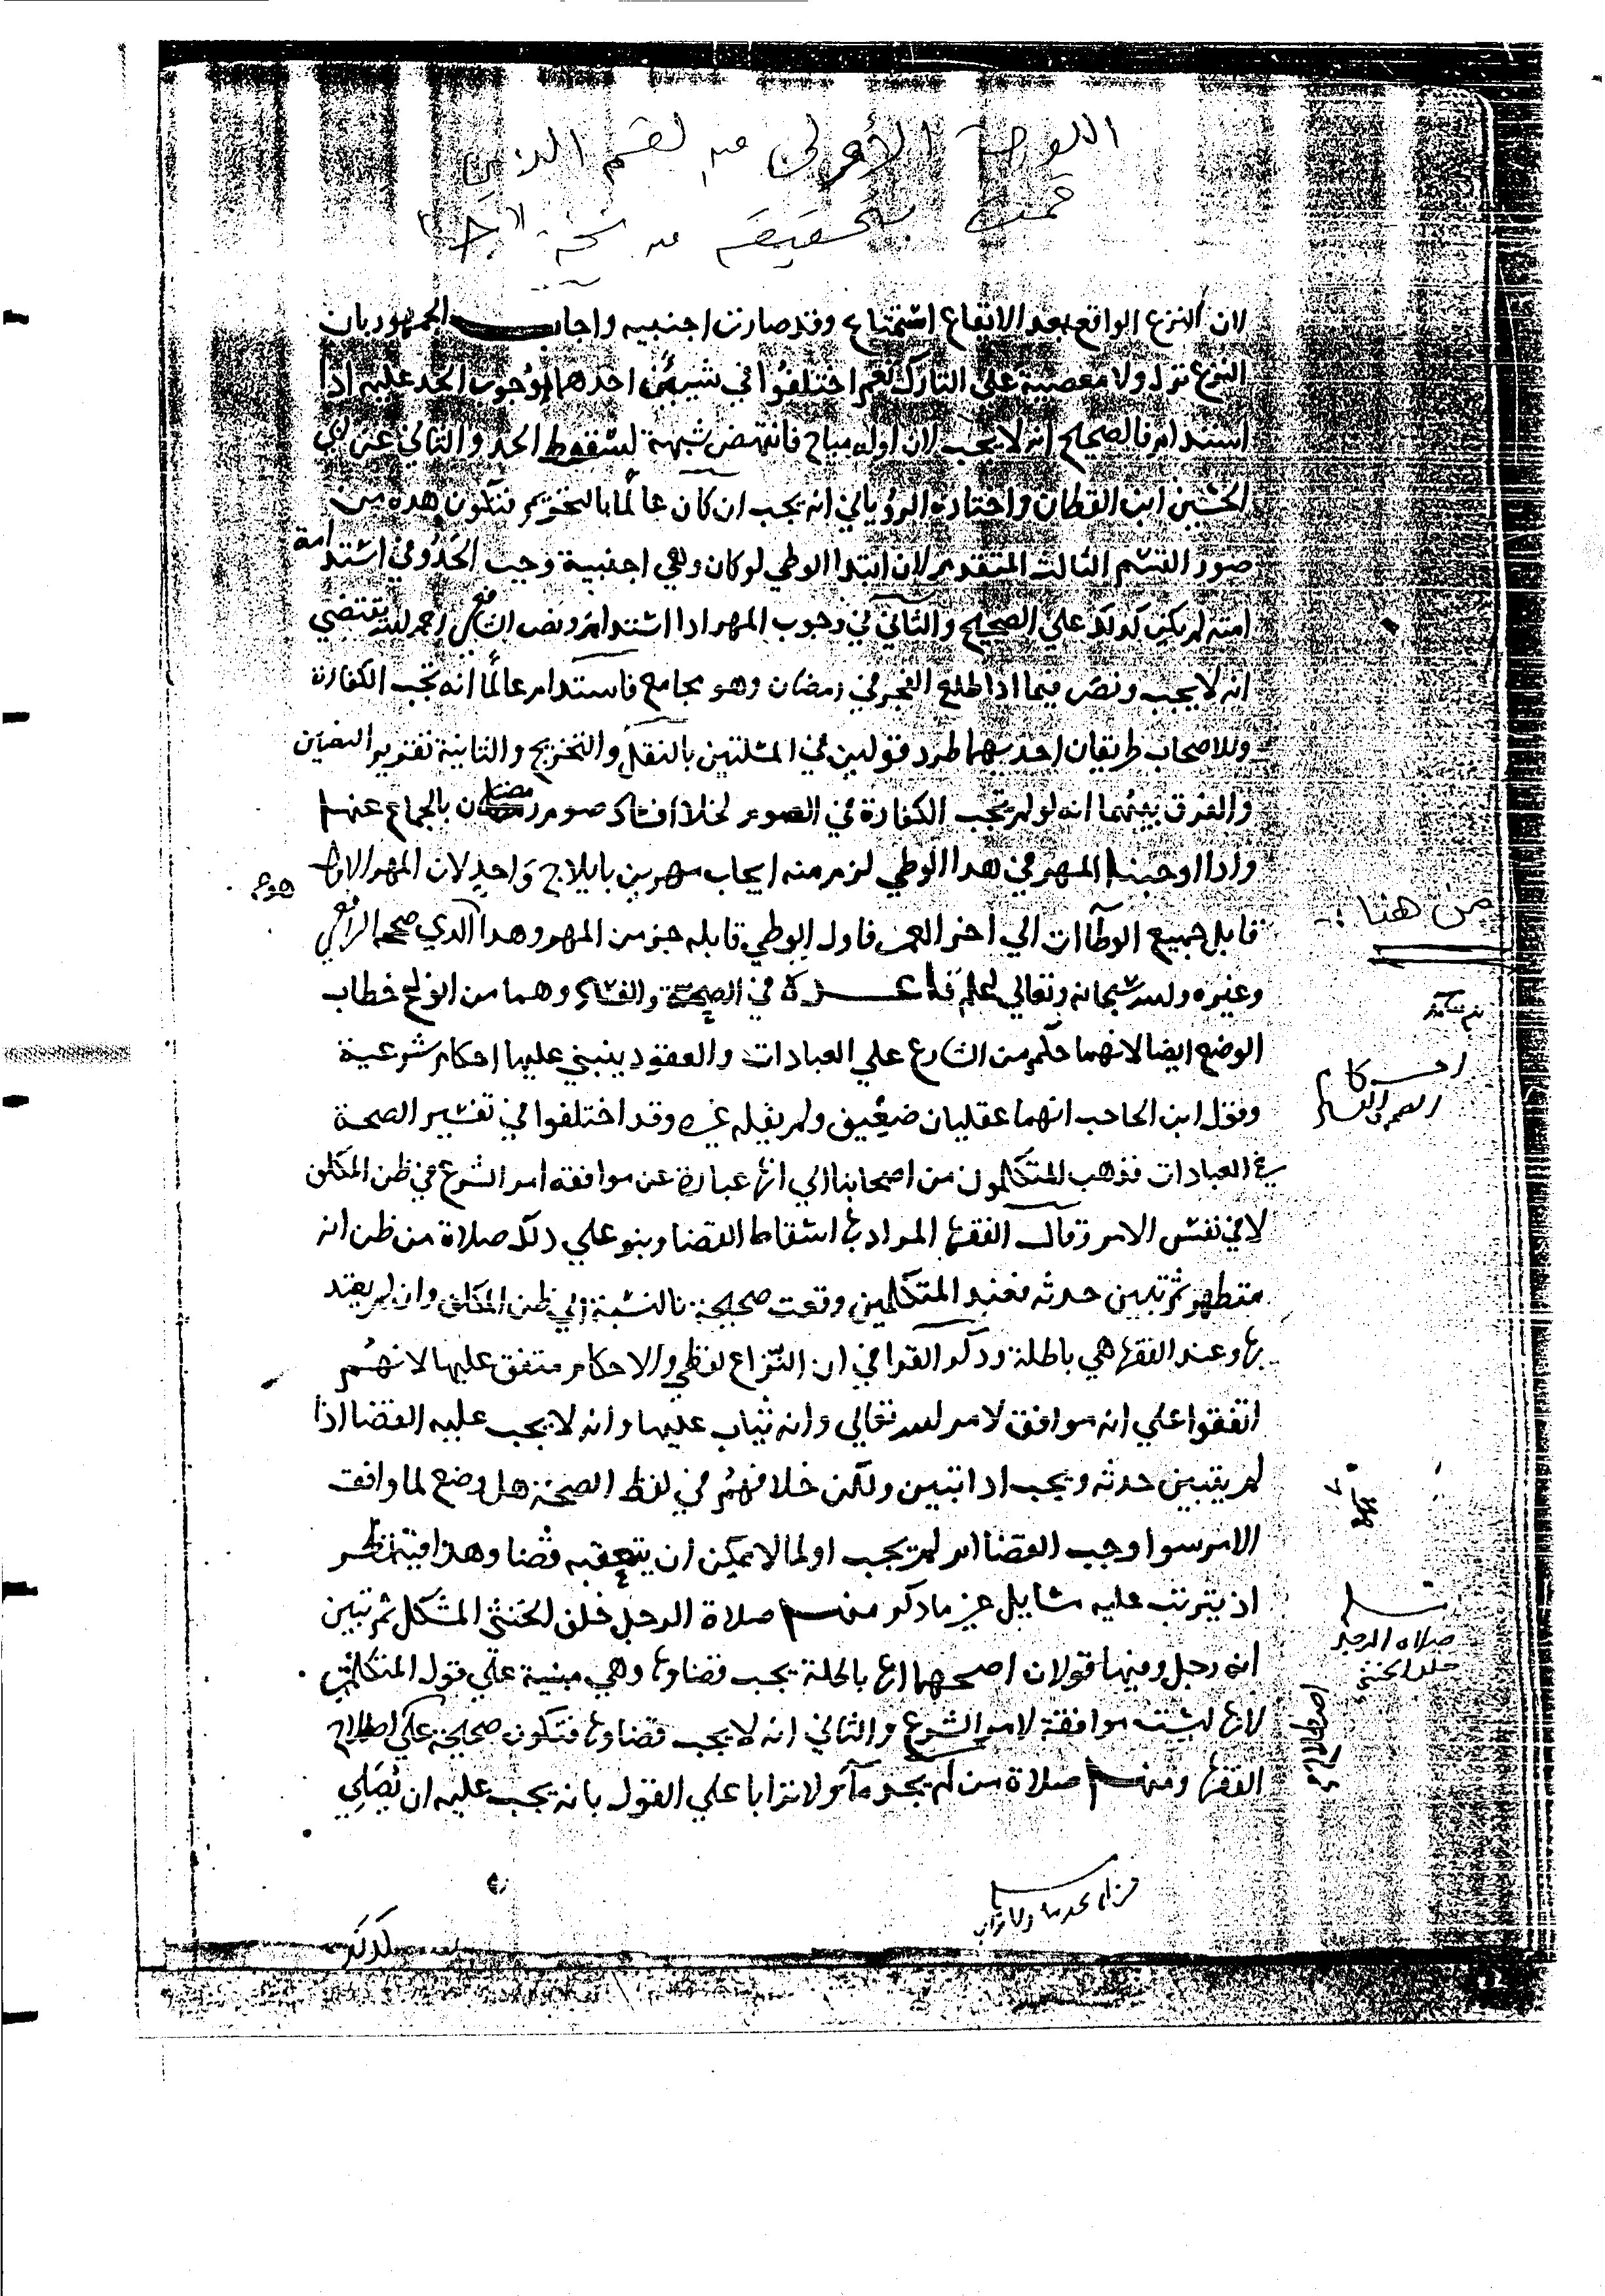 اللوحة الأولى من القسم الذي
قمت بتحقيقه من نسخة "ج"
لان النزع الواقع بعد الايقاع استمتاع وقد صارت اجنبيه واجاب الجمهور بان
النزع ترك ولا معصية على التارك نعم اختلفوا في شيين احدهما وجوب الحد عليه اذا
استدام فالصحيح انه لا يجب لان اوله مباح فانتهض شبهة لسقوط الحد والثاني عن ابي
الحسين ابن القطان واختاره الروياني انه يجب ان كان عالما بالتحريم فتكون هذه من
صور القسم الثالث المتقدم لان ابتدا الوطي لو كان وهي اجنبية وجب الحد وفي استدامة
امته لم يكن كذلك علي الصحيح والثاني في وجوب المهر اذا استدام ونص الشافعي رحمه الله يقتضي
انه لا يجب ونص فيما اذا طلع الفجر في رمضان وهو مجامع فاستدام عالما انه تجب الكفارة
وللاصحاب طريقان احديهما طرد قولين في المسئلتين بالنقل والتخريج والثانية تقرير النصين
والفرق بينهما انه لو لم تجب الكفارة في الصوم لخلا افساد صوم رمضان بالجماع عنها
واذا اوجبنا المهر في هذا الوطي لزم منه ايجاب مهرين بايلاج واحد لان المهر الاول
قابل جميع الوطآات الي اخر العمر فاول الوطي قابله جز من المهر وهذا الذي صححه الرافعي
وغيره والله سبحانه وتعالي اعلم قاعدة في الصحة والفساد وهما من انواع خطاب
الوضع ايضا لانهما حكم من الشارع علي العبادات والعقود ينبني عليها احكام شرعية
وقول ابن الحاجب انهما عقليان ضعيف ولم يقله غيره وقد اختلفوا في تفسير الصحة
في العبادات فذهب المتكلمون من اصحابنا الي انها عبارة عن موافقة امر الشرع في ظن المكلف
لا في نفس الامر وقال الفقها المراد بها اسقاط القضا وبنو علي ذلك صلاة من ظن انه
متطهر ثم تبين حدثه فعند المتكلمين وقعت صحيحة بالنسبة الي ظن المكلف وان لم يعتد
بها وعند الفقها هي باطلة وذكر القرافي ان النزاع لفظي والاحكام متفق عليها لانهم
اتفقوا علي انه موافق لامر الله تعالي وانه يثاب عليها وانه لا يجب عليه القضا اذا
لم يتبين حدثه ويجب اذا تبين ولكن خلافهم في لفظ الصحة هل وضع لما وافق
الامر سوا وجب القضا ام لم يجب او لما لا يمكن ان يتعقبه قضا وهذا فيه نظر
اذ يترتب عليه مسايل غير ما ذكر منها صلاة الرجل خلف الخنثى المشكل ثم تبين
انه رجل وفيها قولان اصحهما انها باطلة يجب قضاوها وهي مبنية علي قول المتكلمين
لانها ليست موافقة لامر الشرع والثاني انه لا يجب قضاوها فتكون صحيحة علي اصطلاح
الفقها ومنها صلاة من لم يجد مآ ولا ترابا علي القول بانه يجب عليه ان يصلي
من هنا :-
احكام
الصحة والفساد
صلاه الرجل
خلف الخنثى
كذلك